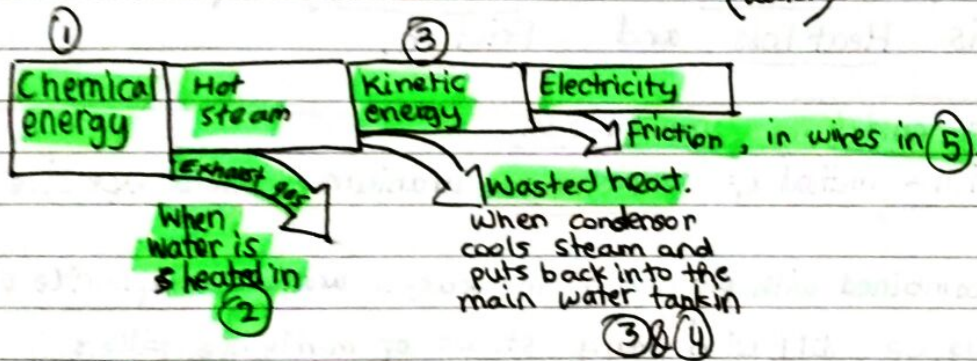 (1) (3)
Chemical energy
Hot steam
Kinetic energy
Electricity
Friction, in wires in (5)
Exhaust gas
Wasted heat.
When
water is
heated in
(2)
When condensor
cools steam and
puts back into the
main water tank in
(3) & (4)